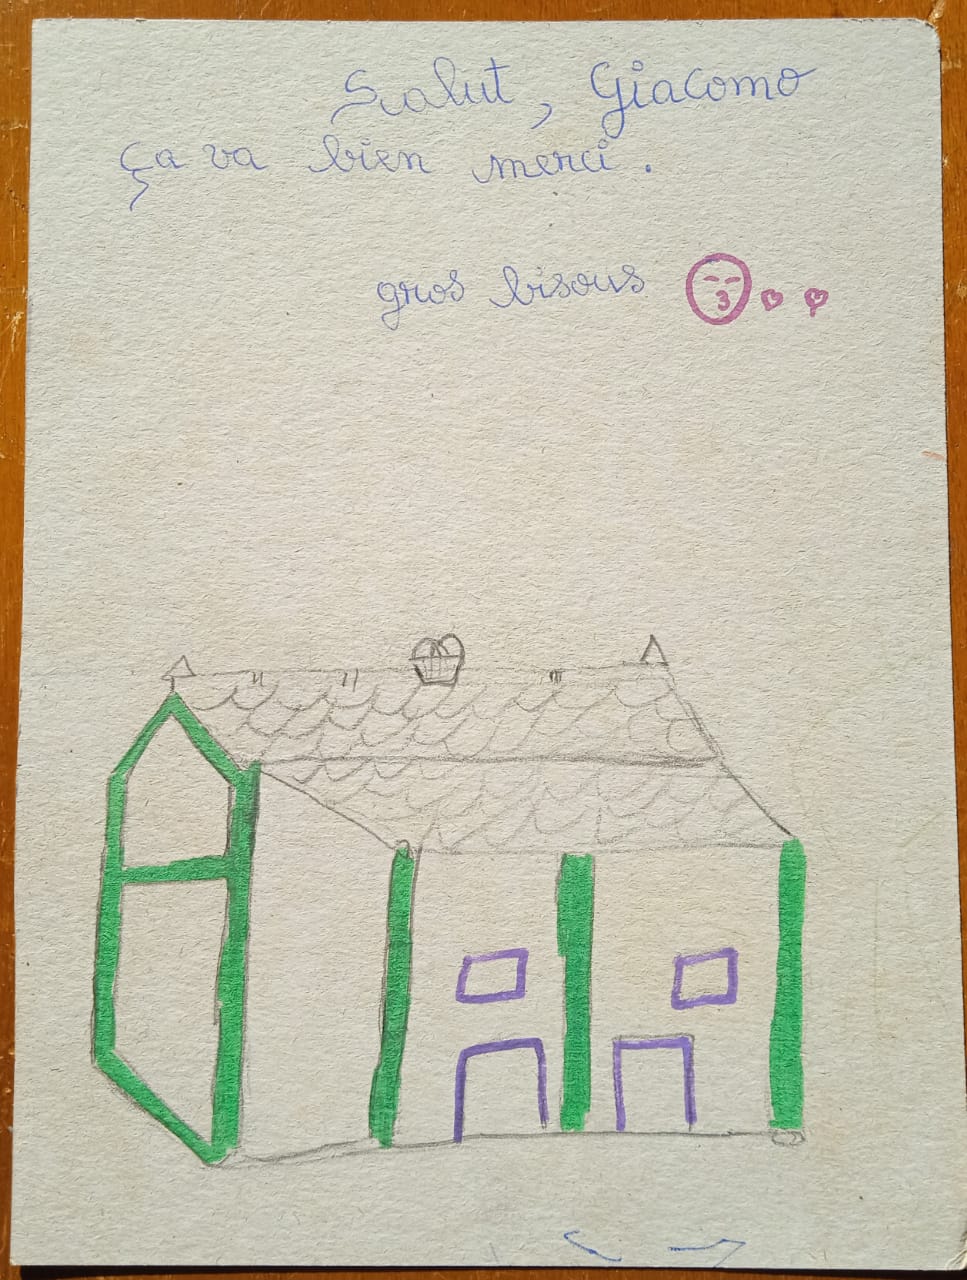 Salut, Giacomo
ça va bien merci.
gros bisous